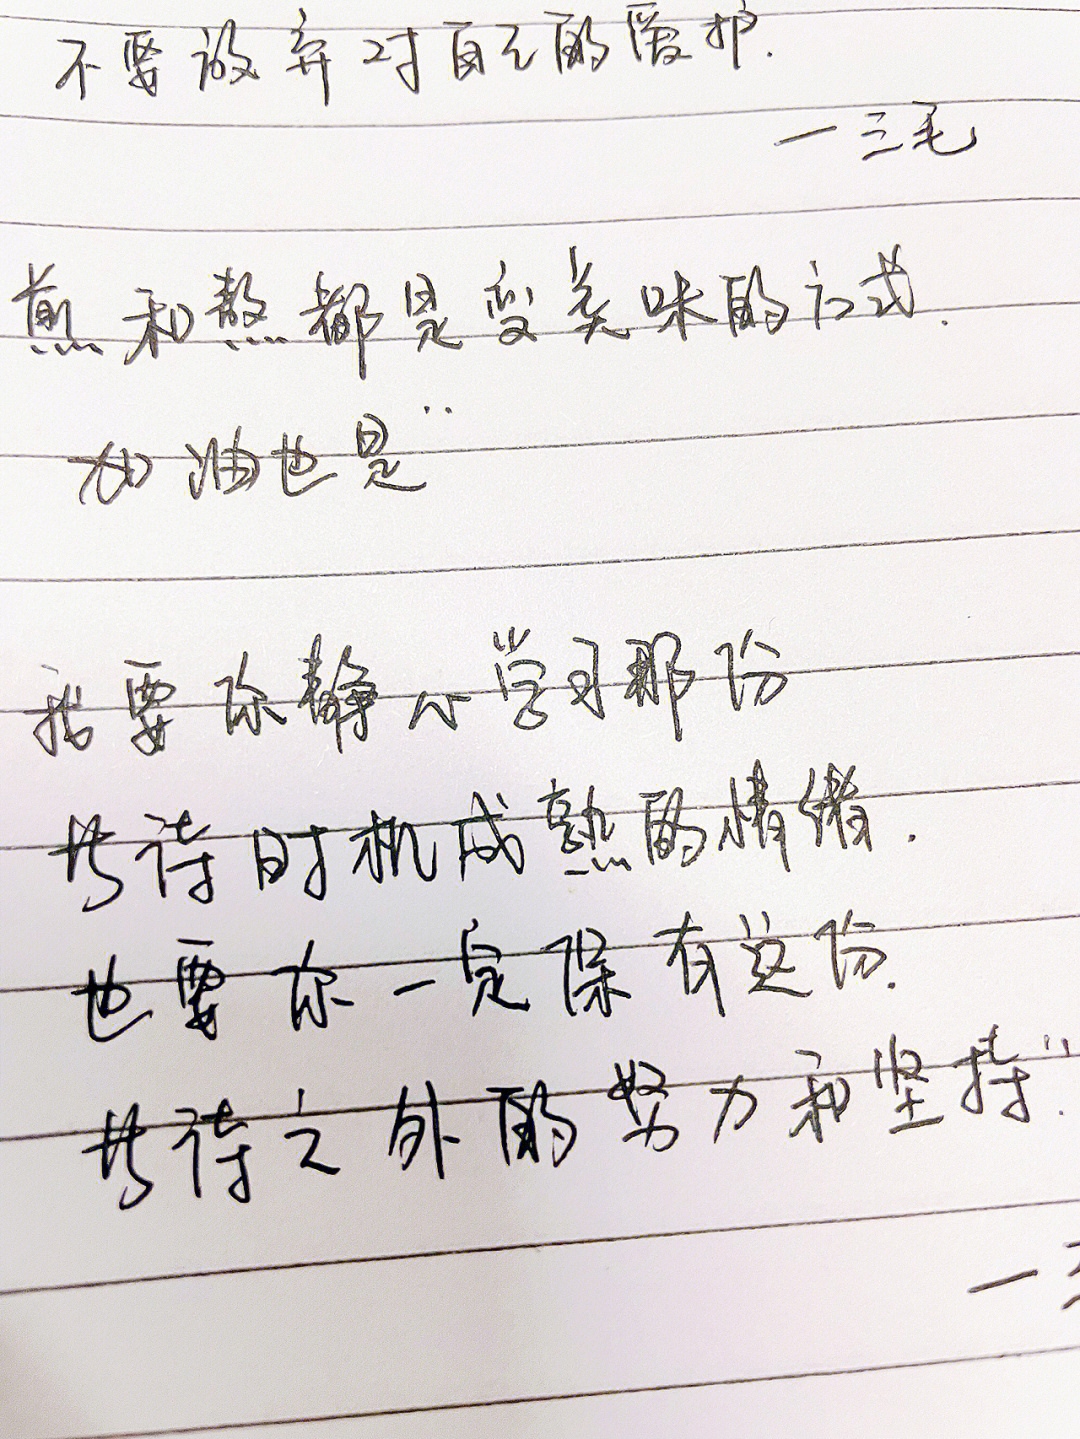 不要放弃对自己的爱护.
—三毛
煎和熬都是变美味的方式.
加油也是"
我要你静心学习那份
等待时机成熟的情绪.
也要你一定保有这份.
等待之外的努力和坚持".